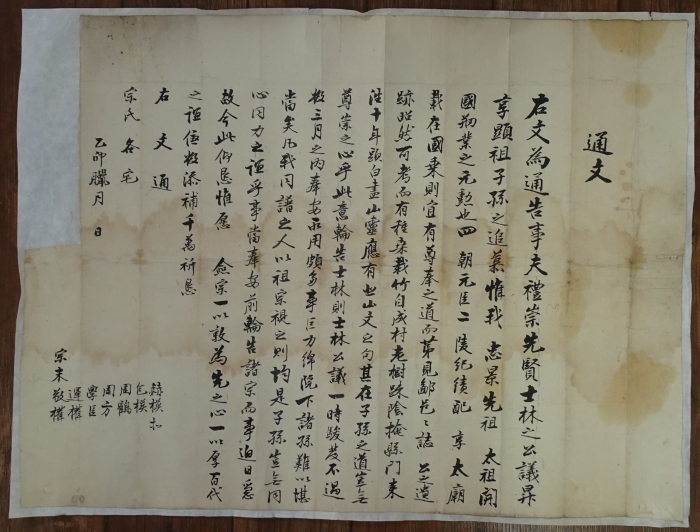 通文
右文爲通告事夫禮崇先賢士林之公議昇
享顯祖子孫之追慕惟我 志景先祖 太祖開
國刱業之元勳也四 朝元匡二 陵紀績配 享 太廟
載在國乘則宜有尊奉之道而第見鄙邑邑誌 公之遺
跡昭然可考而有種桑栽竹自成村老樹疎陰掩縣門來
淮十年頭白盡山靈應有也山文之句其在子孫之道豈無
尊崇之心乎此意輪告士林則士林公議一時駿發不過
數三月之內奉安而用頗多事巨力綿院下諸孫難以堪
當矣凡我同譜之人以祖宗視之則均是子孫豈無同
心同力之誼乎事當奉安前輪告諸宗而事迫日急
故今此仰恳惟愿 僉宗一以敦爲先之心一以厚百代
之誼優數添補千萬祈恳
右 文 通
宗氏 各宅
乙卯臘月 日
宗末敬權